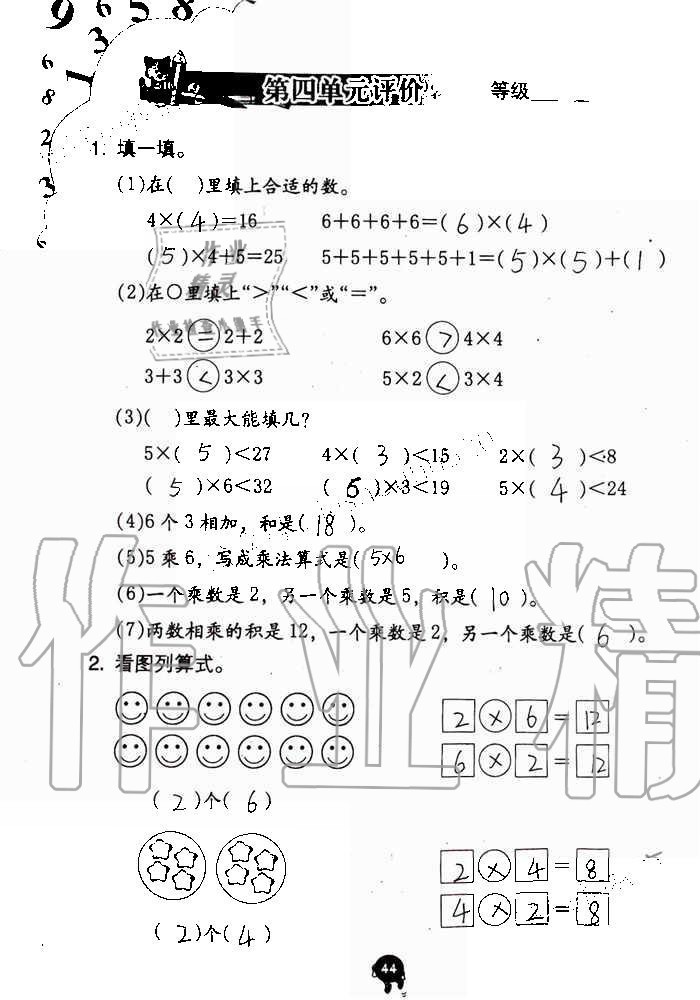 9 6 5 8
6 3
8 1
2
3
6
第四单元评价 等级
1. 填一填。
(1)在( )里填上合适的数。
4×( 4 )=16 6+6+6+6=( 6 )×( 4 )
( 5 )×4+5=25 5+5+5+5+5+1=( 5 )×( 5 )+( 1 )
(2)在○里填上“>”“<”或“=”。
2×2 = 2+2 6×6 > 4×4
3+3 < 3×3 5×2 < 3×4
(3)( )里最大能填几?
5×( 5 )<27 4×( 3 )<15 2×( 3 )<8
( 5 )×6<32 ( 6 )×3<19 5×( 4 )<24
(4)6个3相加，和是( 18 )。
(5)5乘6，写成乘法算式是( 5×6 )。
(6)一个乘数是2，另一个乘数是5，积是( 10 )。
(7)两数相乘的积是12，一个乘数是2，另一个乘数是( 6 )。
2. 看图列算式。
2 × 6 = 12
6 × 2 = 12
( 2 )个( 6 )
2 × 4 = 8
4 × 2 = 8
( 2 )个( 4 )
44
作业精灵
作业检查小助手
作业精